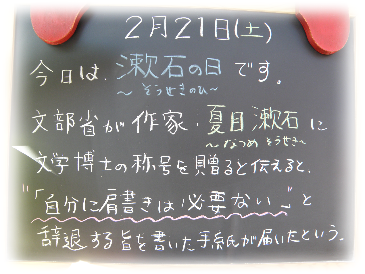 2月21日(土)
今日は、漱石の日です。
～そうせきのひ～
文部省が作家・夏目漱石に
～なつめ そうせき～
文学博士の称号を贈ると伝えると、
"「自分に肩書きは必要ない。」"と
辞退する旨を書いた手紙が届いたという。